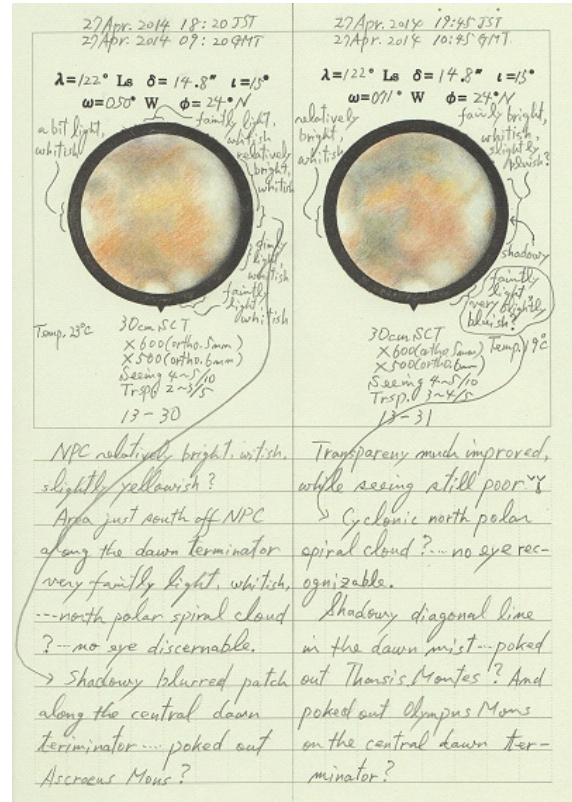 27 Apr. 2014 18:20 JST
27 Apr. 2014 09:20 GMT
λ=122° Ls δ=14.8" ι=15°
ω=050° W φ=24°N
a bit light,
whitish
faintly light,
whitish
relatively
bright,
whitish
dimly
light,
whitish
faintly
light,
whitish
Temp. 23°C
30cm SCT
×600(ortho.5mm)
×500(ortho.6mm)
Seeing 4~5/10
Trsp. 2~3/5
13-30
NPC relatively bright, witish,
slightly yellowish?
Area just south off NPC
along the dawn terminator
very faintly light, whitish,
---north polar spiral cloud
?---no eye discernable.
→ Shadowy blurred patch
along the central dawn
teriminator---- poked out
Ascraeus Mons?
27 Apr. 2014 19:45 JST
27 Apr. 2014 10:45 GMT
λ=122° Ls δ=14.8" ι=15°
ω=071° W φ=24°N
relatively
bright,
whitish
fairly bright,
whitish,
slightly
bluish?
shadowy
faintly
light,
very slightly
bluish?
Temp. 19°C
30cm SCT
×600(ortho.5mm)
×500(ortho.6mm)
Seeing 4~5/10
Trsp. 3~4/5
13-31
Transpareny much improved,
while seeing still poor
→ Cyclonic north polar
spiral cloud?---no eye rec-
ognizable.
Shadowy diagonal line
in the dawn mist---poked
out Tharsis Montes? And
poked out Olympus Mons
on the central dawn ter-
minator?